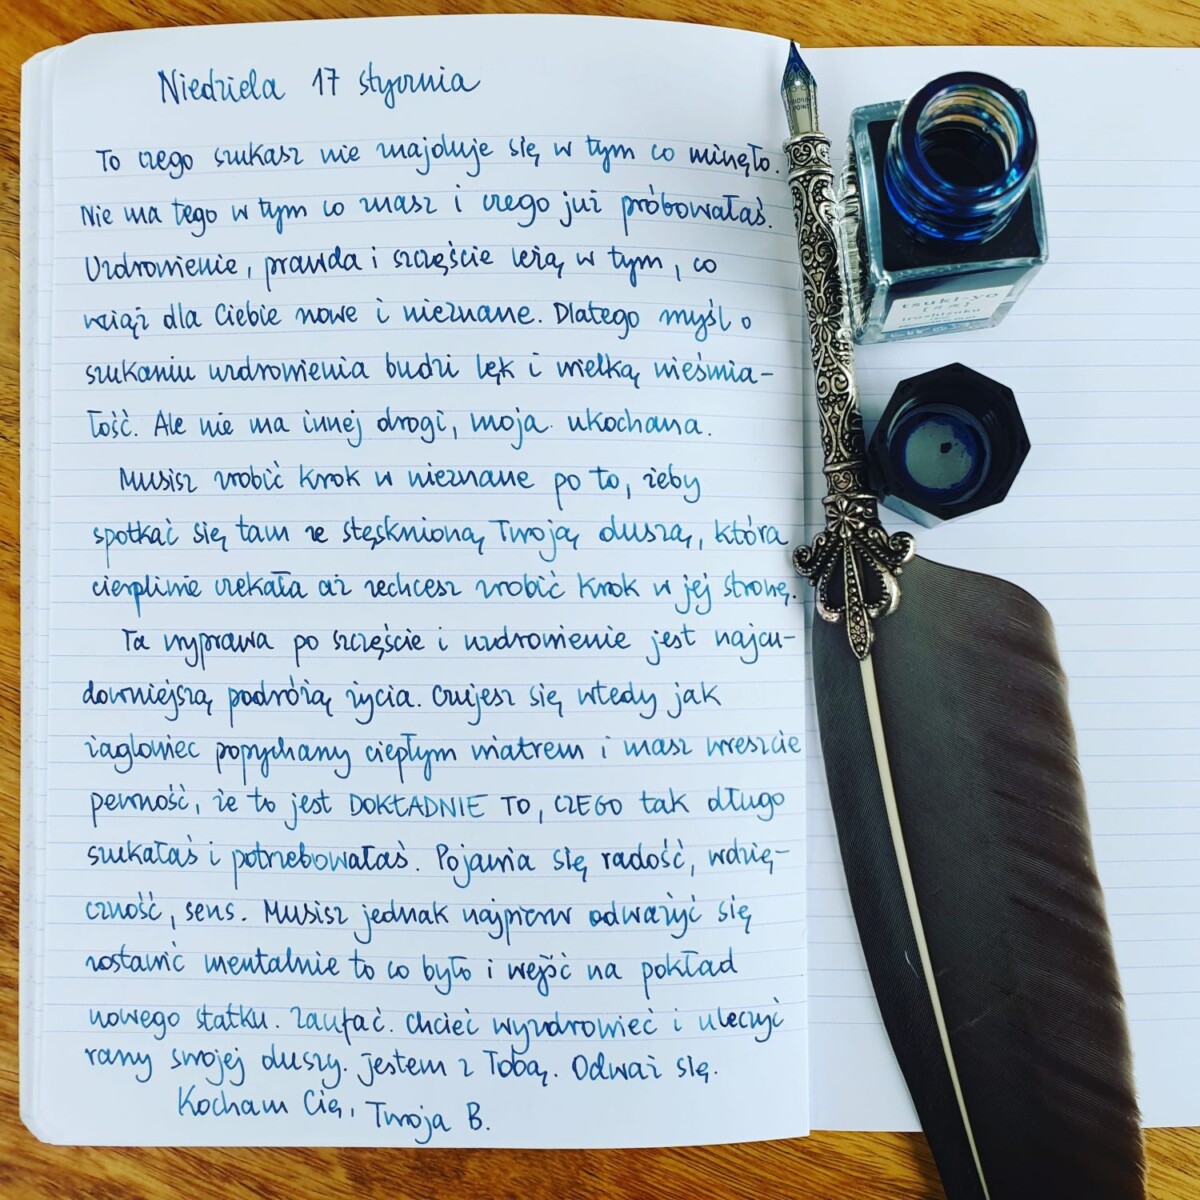 Niedziela 17 stycznia
To czego szukasz nie znajduje się w tym co minęło.
Nie ma tego w tym co znasz i czego już próbowałaś.
Uzdrowienie, prawda i szczęście leżą w tym, co
wciąż dla Ciebie nowe i nieznane. Dlatego myśl o
szukaniu uzdrowienia budzi lęk i wielką nieśmia-
łość. Ale nie ma innej drogi, moja ukochana.
Musisz zrobić krok w nieznane po to, żeby
spotkać się tam ze stęsknioną Twoją duszą, która
cierpliwie czekała aż zechcesz zrobić krok w jej stronę.
Ta wyprawa po szczęście i uzdrowienie jest najcu-
downiejszą podróżą życia. Czujesz się wtedy jak
żaglowiec popychany ciepłym wiatrem i masz wreszcie
pewność, że to jest DOKŁADNIE TO, CZEGO tak długo
szukałaś i potrzebowałaś. Pojawia się radość, wdzię-
czność, sens. Musisz jednak najpierw odważyć się
zostawić mentalnie to co było i wejść na pokład
nowego statku. Zaufać. Chcieć wyzdrowieć i uleczyć
rany swojej duszy. Jestem z Tobą. Odważ się.
Kocham Cię, Twoja B.
tsuki-yo
[月夜]
iroshizuku